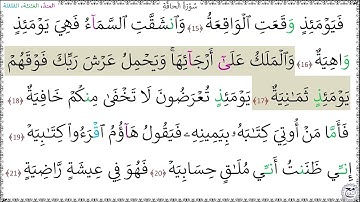 سُورَةُ الحَاقَّةِ
المد، الغنة، القلقلة
فَيَوْمَئِذٍ وَقَعَتِ الْوَاقِعَةُ (15) وَانشَقَّتِ السَّمَاءُ فَهِيَ يَوْمَئِذٍ
وَاهِيَةٌ (16) وَالْمَلَكُ عَلَىٰ أَرْجَائِهَا وَيَحْمِلُ عَرْشَ رَبِّكَ فَوْقَهُمْ
يَوْمَئِذٍ ثَمَانِيَةٌ (17) يَوْمَئِذٍ تُعْرَضُونَ لَا تَخْفَىٰ مِنكُمْ خَافِيَةٌ (18)
فَأَمَّا مَنْ أُوتِيَ كِتَابَهُ بِيَمِينِهِ فَيَقُولُ هَاؤُمُ اقْرَءُوا كِتَابِيَهْ (19)
إِنِّي ظَنَنتُ أَنِّي مُلَاقٍ حِسَابِيَهْ (20) فَهُوَ فِي عِيشَةٍ رَّاضِيَةٍ (21)